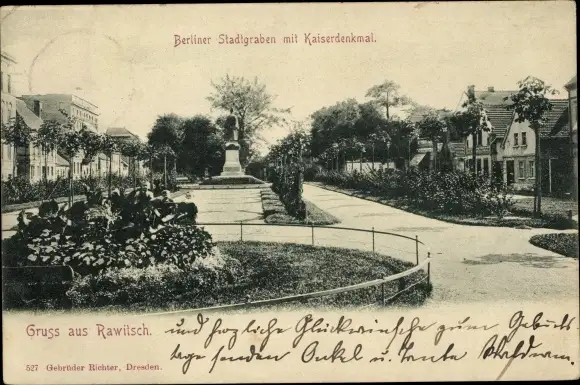 Berliner Stadtgraben mit Kaiserdenkmal.
Gruss aus Rawitsch.
und herzliche Glückwünsche zum Geburts
tage senden Onkel u. Tante
527 Gebrüder Richter, Dresden.